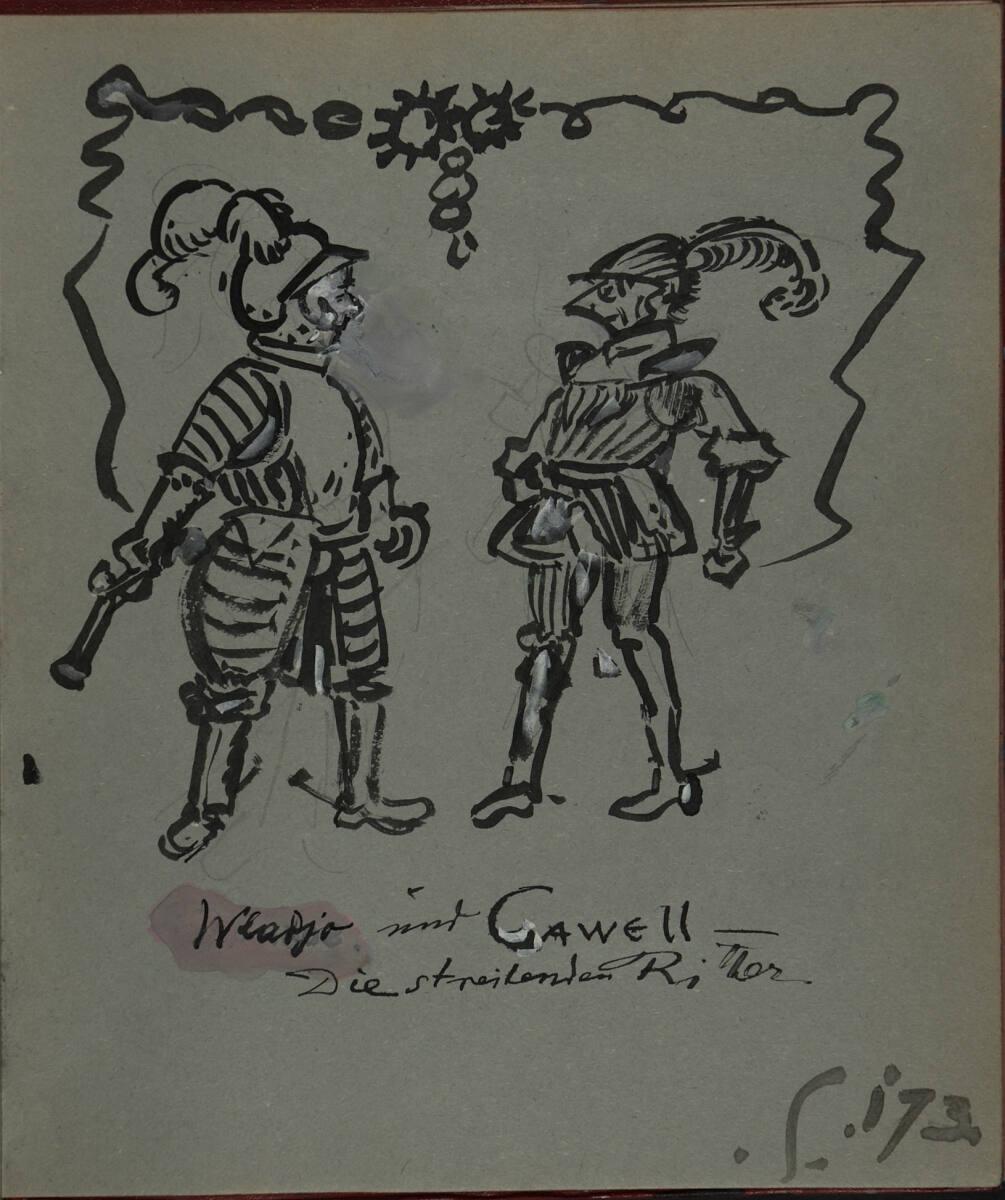 Wladjo und GAWEll —
Die streitenden Ritter
. S. 173